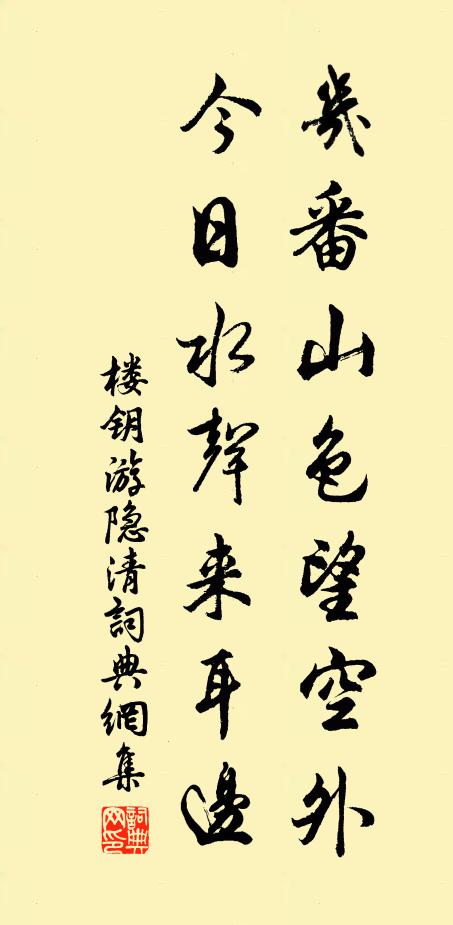 幾番山色望空外
今日水聲来耳邊
楼钥游隐清詞典網集
詞典網印